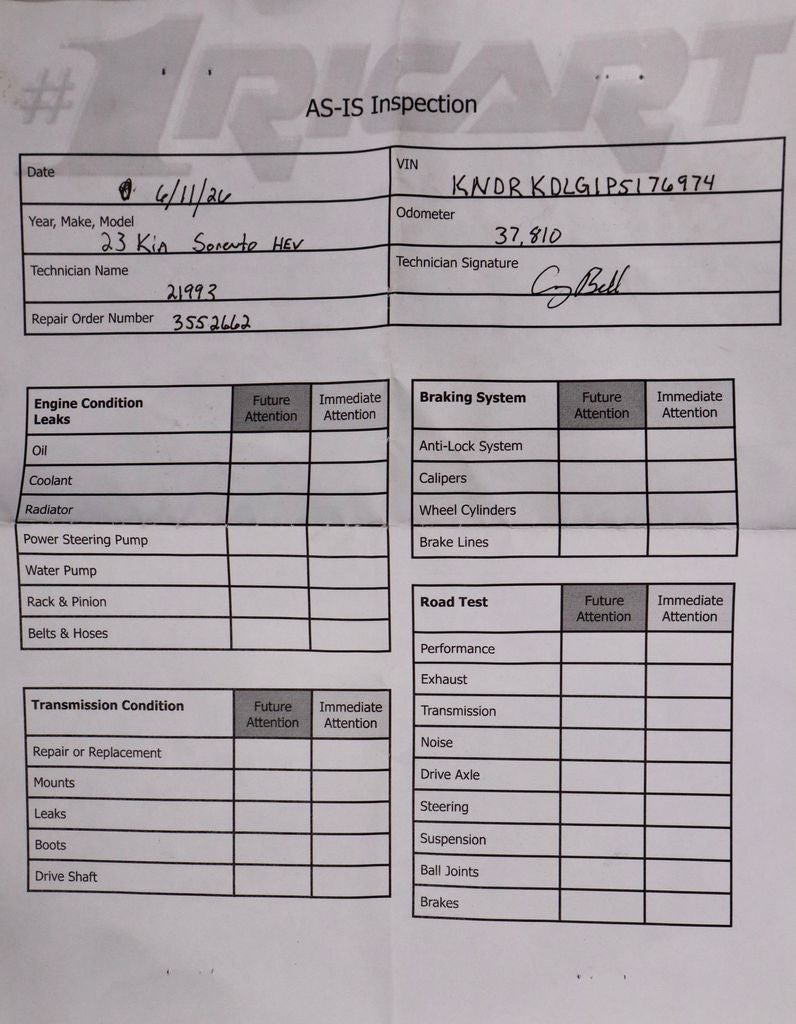 #1RICART
AS-IS Inspection
Date 6/11/26
VIN KNDRKDLG1P5176974
Year, Make, Model 23 Kia Sorento HEV
Odometer 37,810
Technician Name 21993
Technician Signature
Repair Order Number 3552662
Engine Condition Leaks Future Attention Immediate Attention
Oil
Coolant
Radiator
Power Steering Pump
Water Pump
Rack & Pinion
Belts & Hoses
Transmission Condition Future Attention Immediate Attention
Repair or Replacement
Mounts
Leaks
Boots
Drive Shaft
Braking System Future Attention Immediate Attention
Anti-Lock System
Calipers
Wheel Cylinders
Brake Lines
Road Test Future Attention Immediate Attention
Performance
Exhaust
Transmission
Noise
Drive Axle
Steering
Suspension
Ball Joints
Brakes